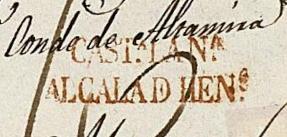 Conde de Altamira
CAST.LA N.A
ALCALA D HEN.S